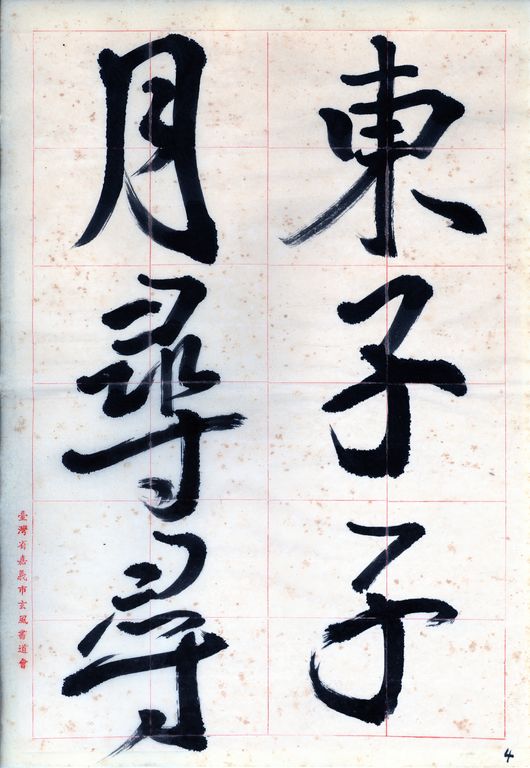 東子子
月尋尋
臺灣省嘉義市玄風書道會
4